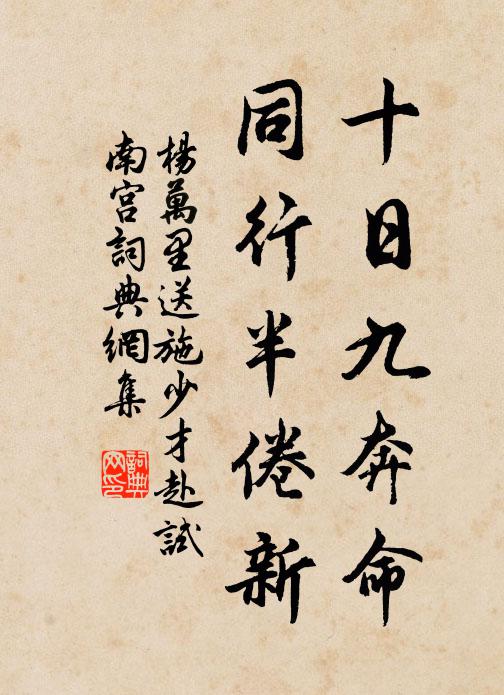 十日九奔命
同行半倦新
楊萬里送施少才赴試
南宫詞典網集
詞典
网印